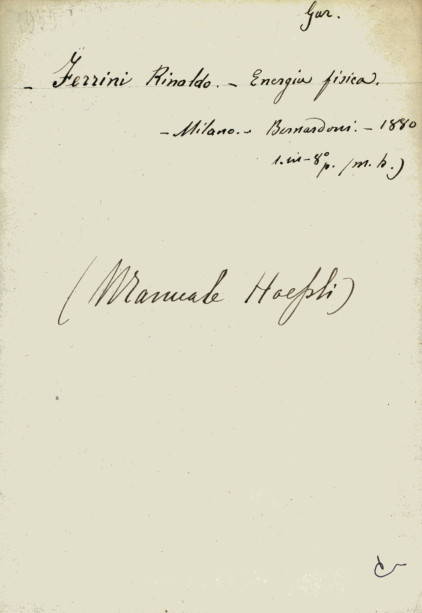 Gar.
- Ferrini Rinaldo. - Energia fisica.
- Milano. - Bernardoni. - 1880
1. in - 8° p. (m. h.)
(Manuale Hoepli)